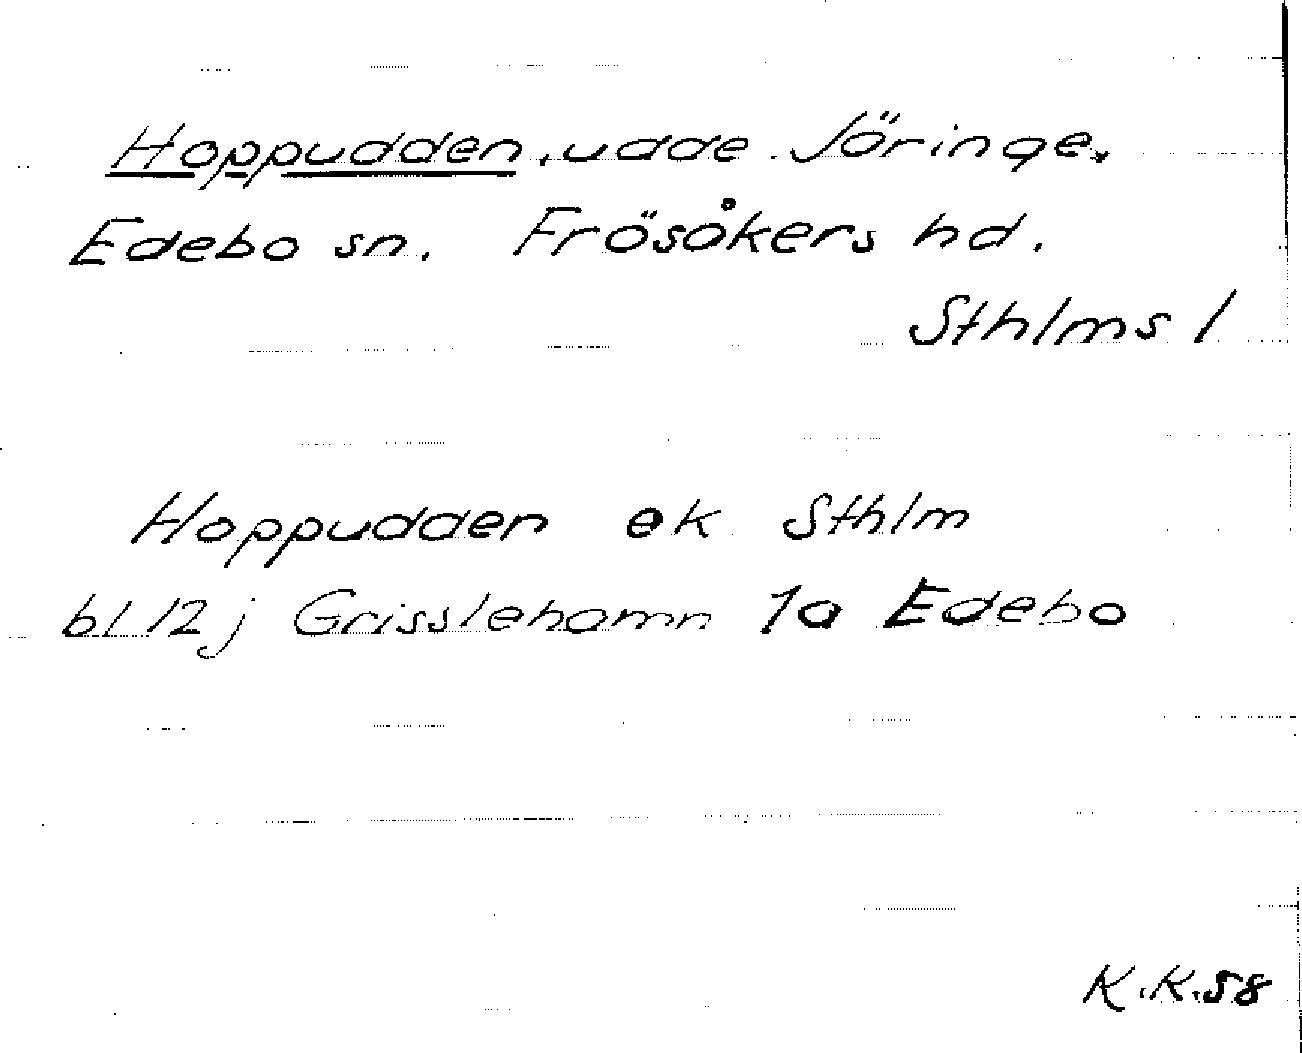 Hoppudden, udde Jöringe,
Edebo sn. Frösåkers hd.
Sthlms l
Hoppudden ek Sthlm
bl 12j Grisslehamn 1a Edebo
K.K.58